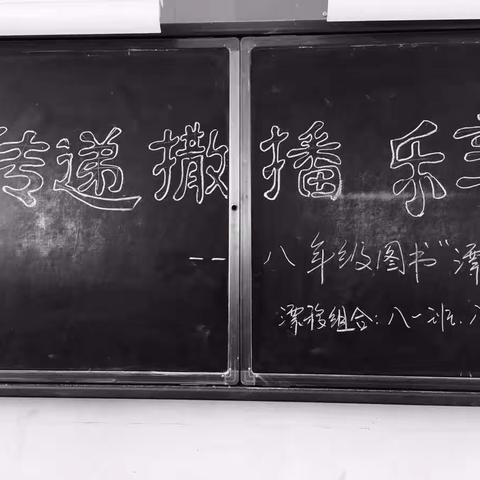 传递 撒播 乐享
--八年级图书“漂
漂移组合：八一班、八